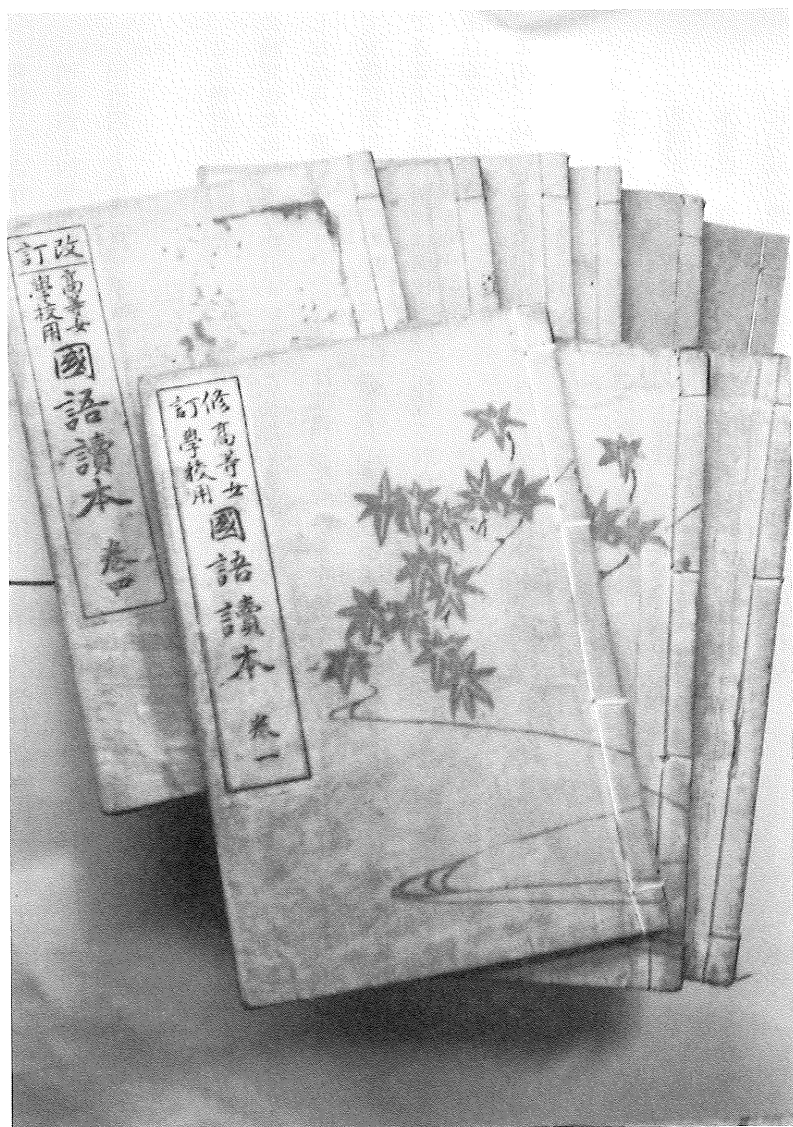 改訂
高等女
學校用
國語讀本 卷四
修訂
高等女
學校用
國語讀本 卷一